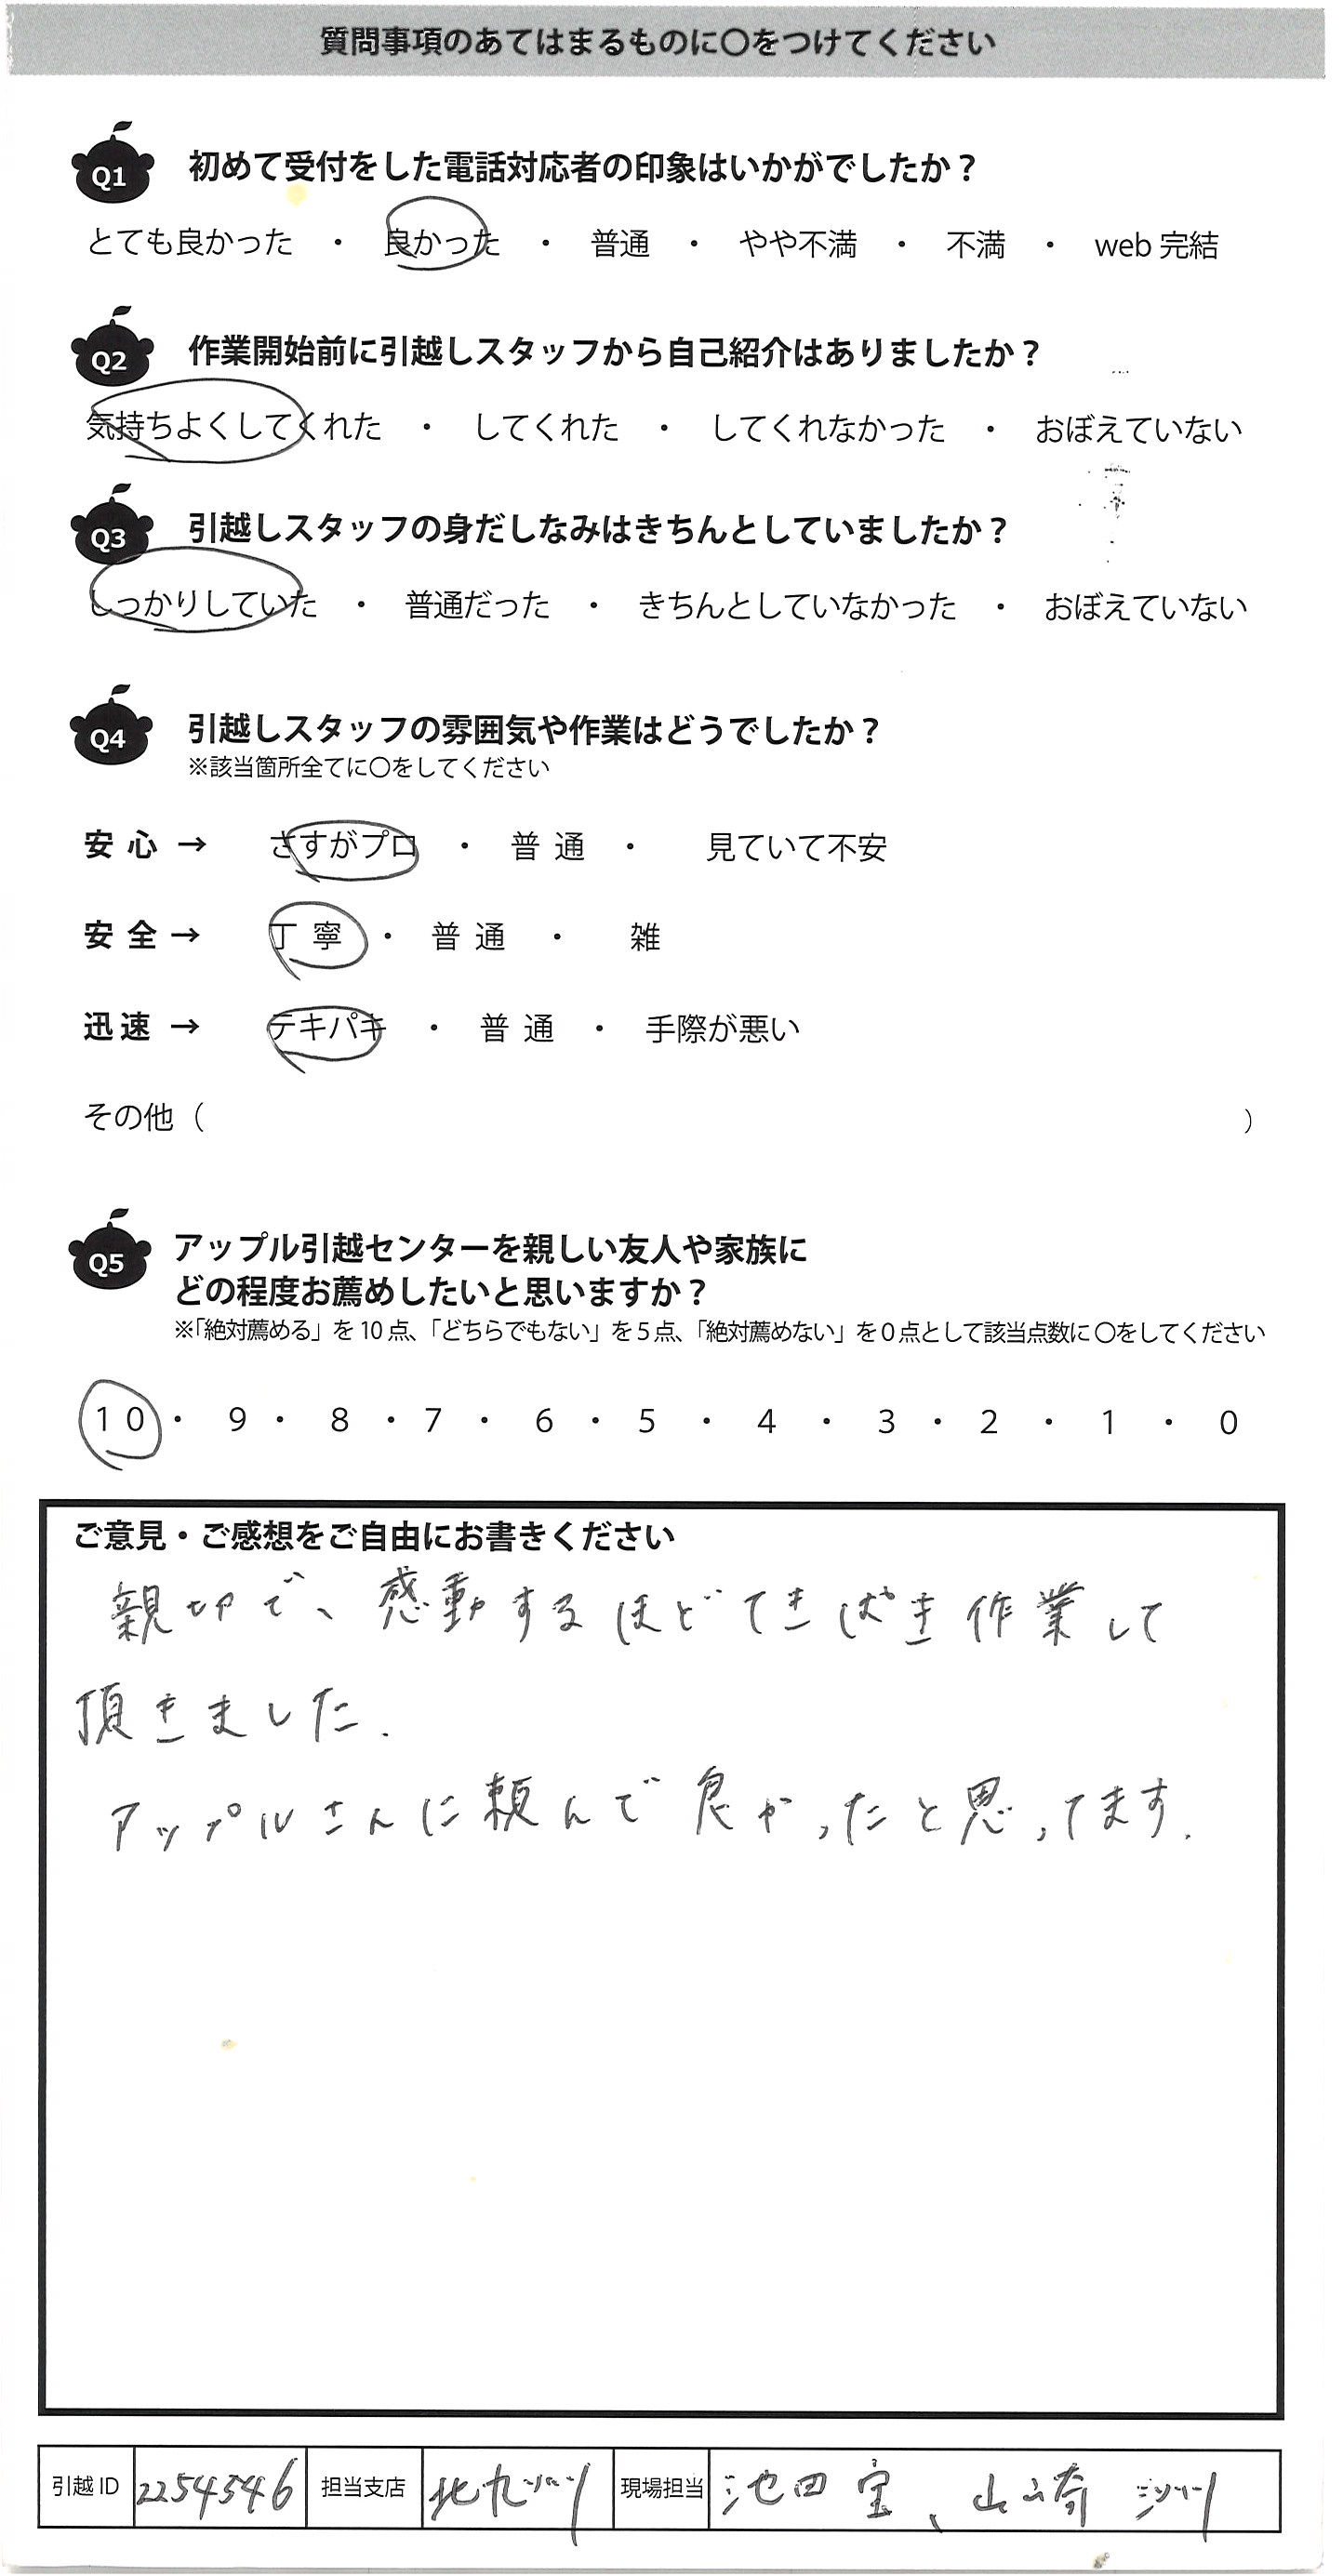 質問事項のあてはまるものに〇をつけてください
Q1 初めて受付をした電話対応者の印象はいかがでしたか？
とても良かった ・ 良かった ・ 普通 ・ やや不満 ・ 不満 ・ web 完結
Q2 作業開始前に引越しスタッフから自己紹介はありましたか？
気持ちよくしてくれた ・ してくれた ・ してくれなかった ・ おぼえていない
Q3 引越しスタッフの身だしなみはきちんとしていましたか？
しっかりしていた ・ 普通だった ・ きちんとしていなかった ・ おぼえていない
Q4 引越しスタッフの雰囲気や作業はどうでしたか？
※該当箇所全てに〇をしてください
安心 → さすがプロ ・ 普通 ・ 見ていて不安
安全 → 丁寧 ・ 普通 ・ 雑
迅速 → テキパキ ・ 普通 ・ 手際が悪い
その他（ ）
Q5 アップル引越センターを親しい友人や家族に
どの程度お薦めしたいと思いますか？
※「絶対薦める」を 10 点、「どちらでもない」を 5 点、「絶対薦めない」を 0 点として該当点数に 〇をしてください
10 ・ 9 ・ 8 ・ 7 ・ 6 ・ 5 ・ 4 ・ 3 ・ 2 ・ 1 ・ 0
ご意見・ご感想をご自由にお書きください
親切で、感動するほどてきぱき作業して
頂きました.
アップルさんに頼んで良かったと思ってます.
引越 ID 2254546 担当支店 北九州 現場担当 池田 宝、山崎